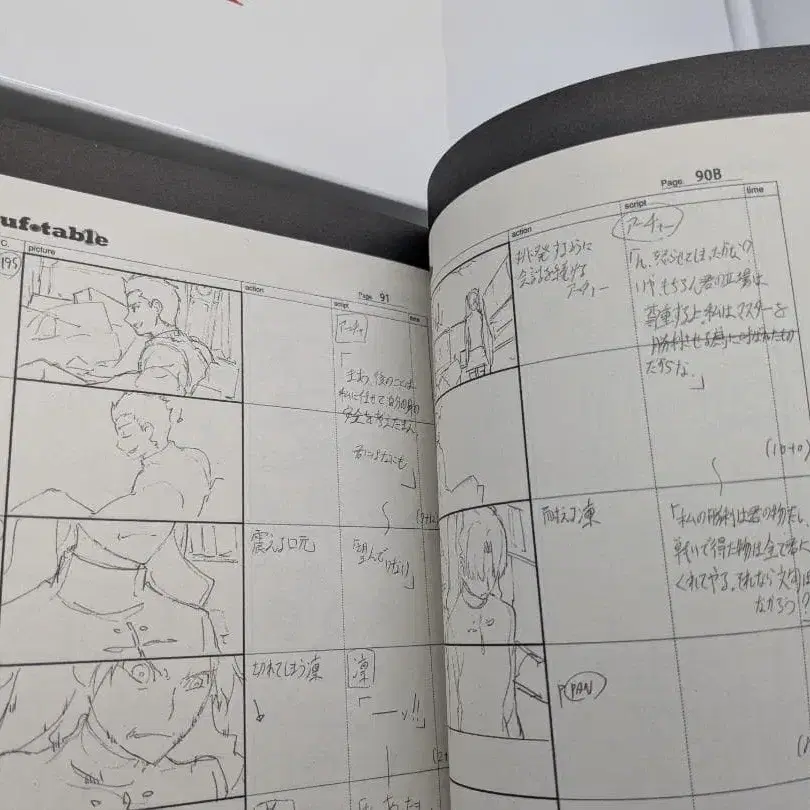 uf•table
C.
picture
action
script
Page 91
time
195
アーチャー
「
まあ、後のことは
私に任せて自分の身の
安全を考えたまえ。
君には
」
震える口元
「望んでいない」
切れてしまう凛
凛
「――ッ!!」
Page 90B
action
script
time
挑発するように
会話を続ける
アーチャー
アーチャー
「ん、怒らせてしまったかな?
いや、もちろん君の立場は
尊重するよ。私はマスターを
勝利させる為に呼ばれたもの
だからな。」
(10+0)
耐える凛
「私の勝利は君の物だし、
戦いで得た物は全て君に
くれてやる。それなら文句は
なかろう
PAN